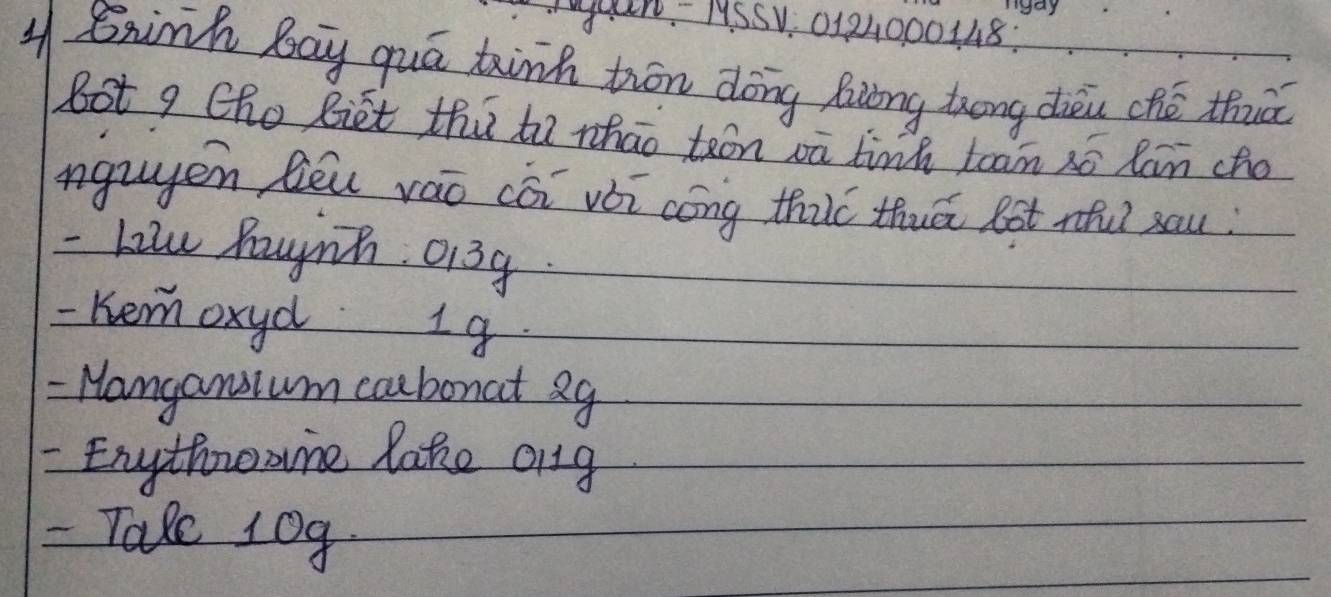 MSSV: 0124000148.
4/ Trình bày quá trình trộn đồng lượng trong điều chế thuốc
bột ? Cho biết thứ tự nhào trộn và tính toán số lần cho
nguyên liệu vào cối với công thức thuốc bột như sau:
- Lưu huỳnh: 0,3g.
- Kẽm oxyd 1g.
- Mangansium carbonat 2g
- Erythrosine lake 0,1g
- Talc 10g.